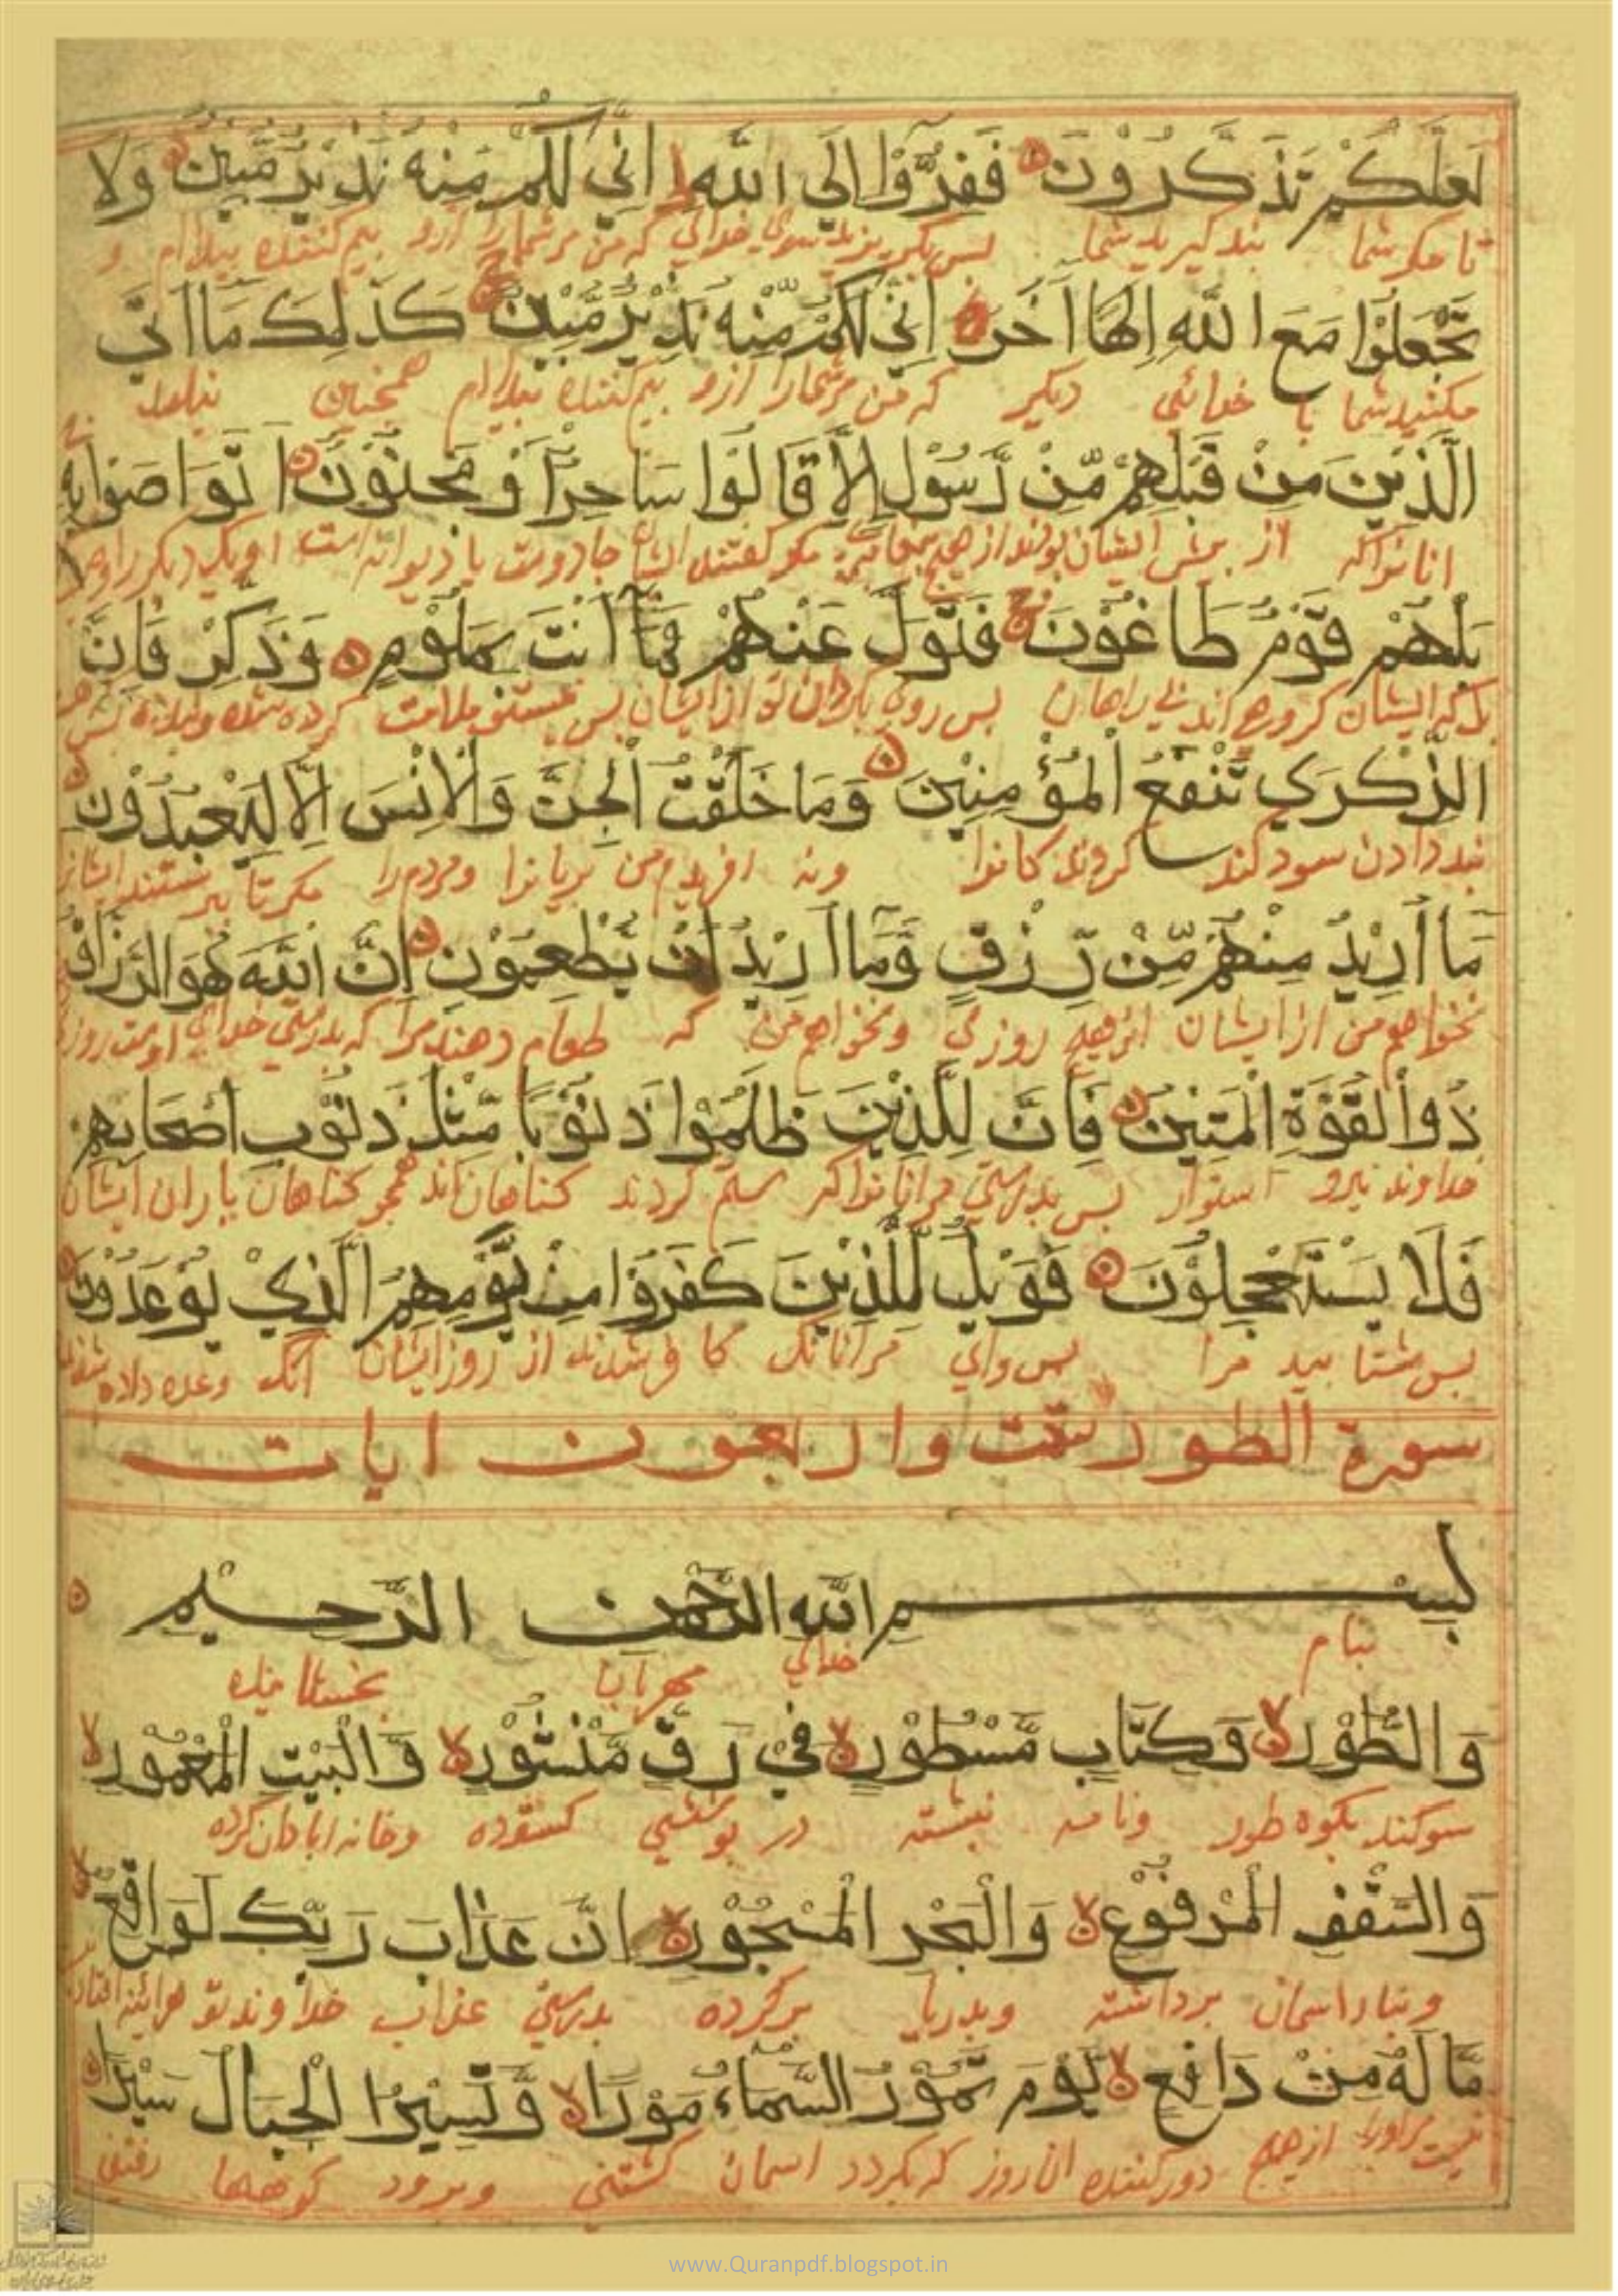 لَعَلَّكُمْ تَذَكَّرُوْنَ فَفِرُّوْا اِلَى اللّٰهِ اِنِّي لَكُمْ مِنْهُ نَذِيْرٌ مُّبِيْنٌ وَلَا
تا مكر شما بند كيريد شما بس بكريزيد بسوى خداى كه من مر شما را ازو بيم كننده بيداام و
تَجْعَلُوْا مَعَ اللّٰهِ اِلٰهًا اٰخَرَ اِنِّي لَكُمْ مِّنْهُ نَذِيْرٌ مُّبِيْنٌ كَذٰلِكَ مَا اَتَى
مكنيد شما با خدائي ديكر كه من مر شما را ازو بيم كننده بيداام همجنين نيامد
الَّذِيْنَ مِنْ قَبْلِهِمْ مِّنْ رَّسُوْلٍ اِلَّا قَالُوْا سَاحِرٌ اَوْ مَجْنُوْنٌ اَتَوَاصَوْا بِهٖ
انانراكه از بيش ايشان بودند از هيج مكر كفتند ايشان جادوست يا ديوانه است يك ديكر را
بَلْ هُمْ قَوْمٌ طَاغُوْنَ فَتَوَلَّ عَنْهُمْ فَمَا اَنْتَ بِمَلُوْمٍ وَذَكِّرْ فَاِنَّ
ايشان كروهي اند بي راهان بس روى بكردان تو از ايشان بس نيستي ملامت كرده شده
الذِّكْرٰي تَنْفَعُ الْمُؤْمِنِيْنَ وَمَا خَلَقْتُ الْجِنَّ وَالْاِنْسَ اِلَّا لِيَعْبُدُوْنِ
بند دادن سود كند كروندكانرا ونه افريدم من بريانرا ومردم را مكر تا ببرستند
مَا اُرِيْدُ مِنْهُمْ مِّنْ رِّزْقٍ وَّمَا اُرِيْدُ اَنْ يُّطْعِمُوْنِ اِنَّ اللّٰهَ هُوَ الرَّزَّاقُ
نخواهم من از ايشان از هيج روزى ونخواهم من كه طعام دهند مرا كه بدرستى خداى اوست
ذُو الْقُوَّةِ الْمَتِيْنُ فَاِنَّ لِلَّذِيْنَ ظَلَمُوْا ذَنُوْبًا مِّثْلَ ذَنُوْبِ اَصْحَابِهِمْ
خداوند نيرو استوار بس بدرستي مرانانراكه ستم كردند كناهان اند همجو كناهان ياران ايشان
فَلَا يَسْتَعْجِلُوْنَ فَوَيْلٌ لِّلَّذِيْنَ كَفَرُوْا مِنْ يَّوْمِهِمُ الَّذِيْ يُوْعَدُوْنَ
بس مشتابيد مرا بس واي مرانانك كافر شدند از روز ايشان انك وعده داده شدند
سورة الطور ست واربعون ايات
بِسْمِ اللّٰهِ الرَّحْمٰنِ الرَّحِيْمِ
بنام خداي مهربان بخشاينده
وَالطُّوْرِ وَكِتَابٍ مَّسْطُوْرٍ فِيْ رَقٍّ مَّنْشُوْرٍ وَّالْبَيْتِ الْمَعْمُوْرِ
سوكند بكوه طور ونامه نبشته در بوستي كشوده وخانه ابادان كرده
وَالسَّقْفِ الْمَرْفُوْعِ وَالْبَحْرِ الْمَسْجُوْرِ اِنَّ عَذَابَ رَبِّكَ لَوَاقِعٌ
اسمان برداشته وبدريا بركرده بدرستي عذاب خداوند تو هرائينه
مَّا لَهٗ مِنْ دَافِعٍ يَّوْمَ تَمُوْرُ السَّمَاءُ مَوْرًا وَّتَسِيْرُ الْجِبَالُ سَيْرًا
نيست مر اورا از هيج دور كننده ان روز كه بكردد اسمان كشتني وبرود كوهها رفتني
www.Quranpdf.blogspot.in